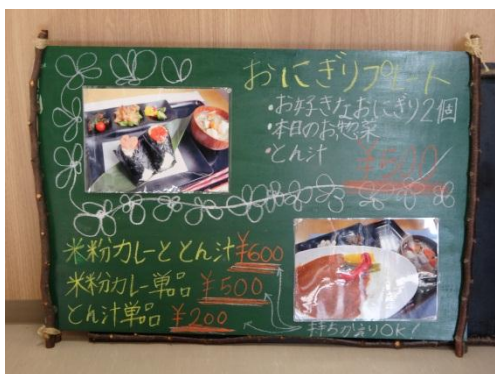 おにぎりプレート
・お好きなおにぎり2個
・本日のお惣菜
・とん汁
米粉カレーととん汁 ¥600
米粉カレー単品 ¥500
とん汁単品 ¥200
持ちかえりOK!